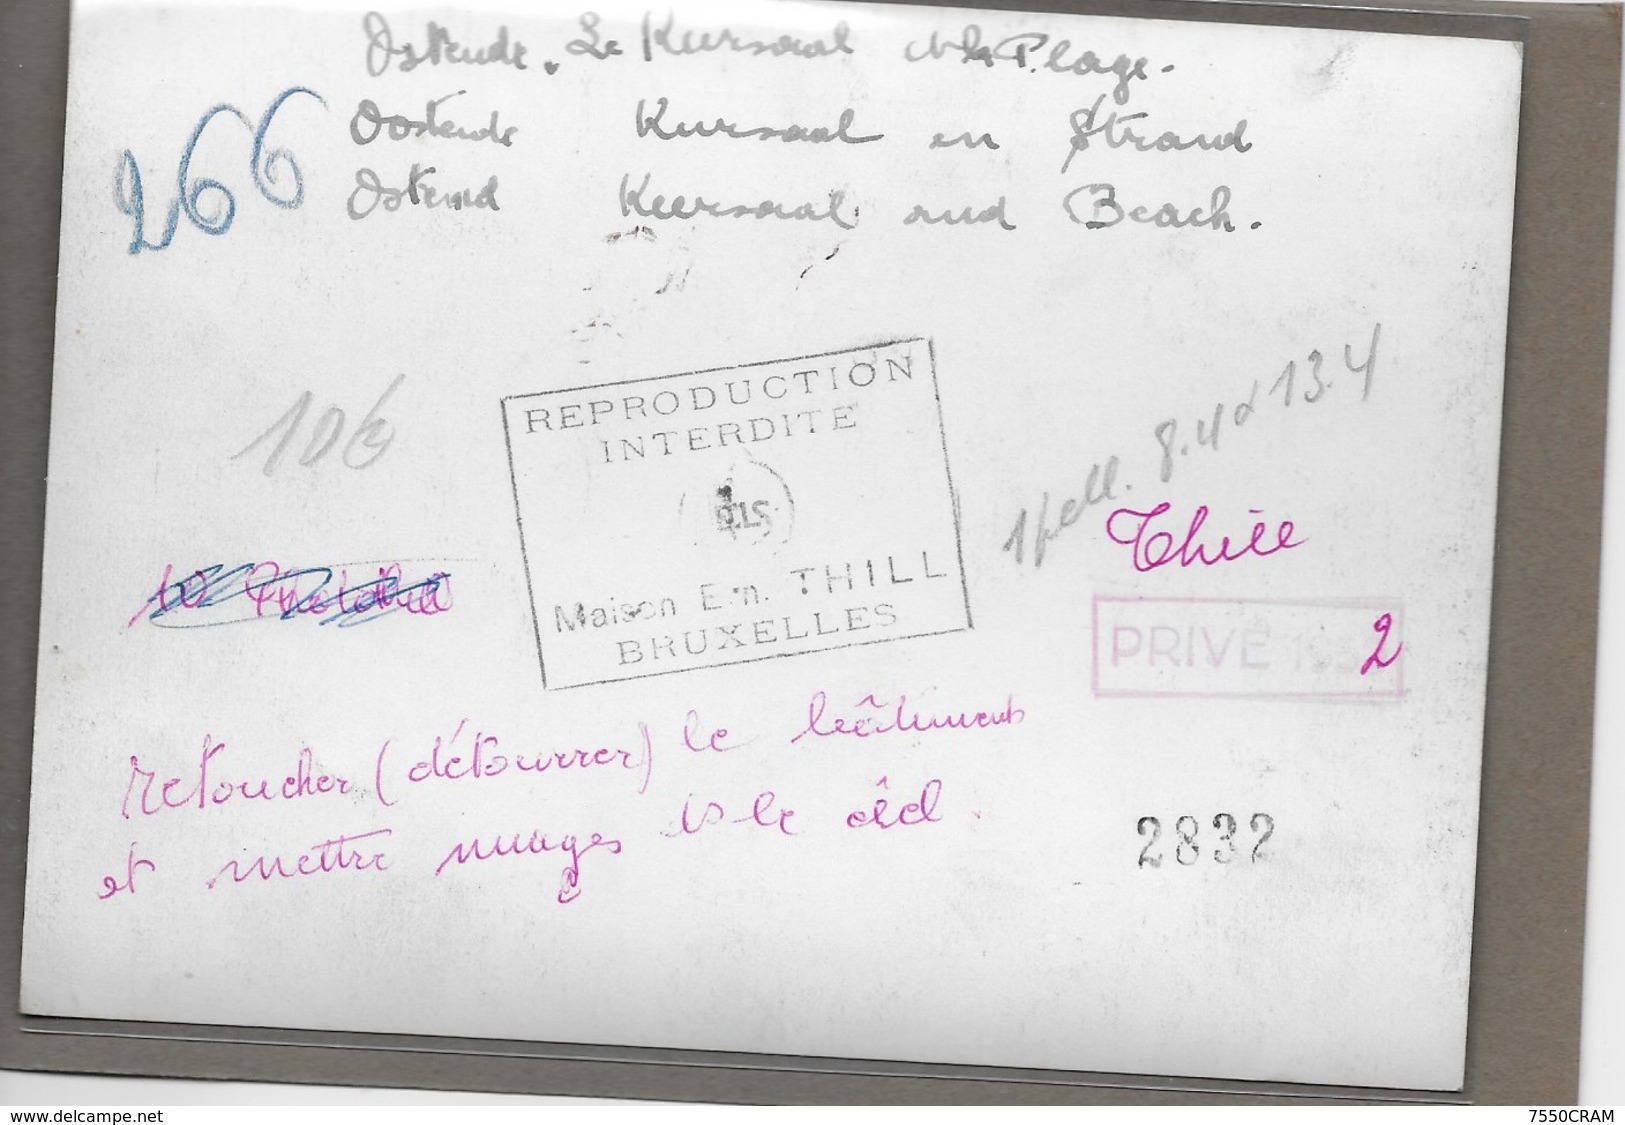 Ostende. Le Kursaal et la Plage.
Oostende Kursaal en Strand
Ostend Kursaal and Beach.
266
REPRODUCTION
INTERDITE
106
1 pell. 8.4 à 13.4
Thill
Maison Em. THILL
BRUXELLES
PRIVÉ 195 2
Retoucher (détourrer) le bâtiment
et mettre nuages ds le ciel.
2832
www.delcampe.net
7550CRAM